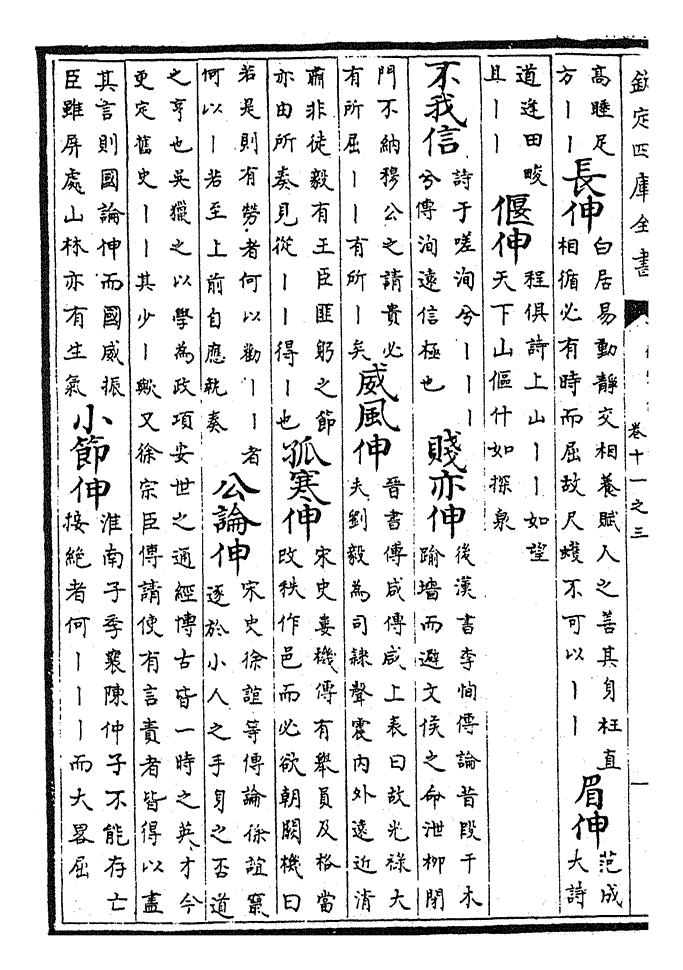 欽定四庫全書 卷十一之三 一
髙睡足
方丨丨
長伸
白居易動靜交相養賦人之善其身枉直
相循必有時而屈故尺蠖不可以丨丨
眉伸
范成
大詩
道逢田畯
且丨丨
偃伸
程俱詩上山丨丨如望
天下山傴什如探泉
不我信
詩于嗟洵兮丨丨丨
兮傳洵逺信極也
賤亦伸
後漢書李恂傳論昔段干木
踰墻而避文侯之命泄柳閉
門不納穆公之請貴必
有所屈丨丨有所丨矣
威風伸
晉書傅咸傳咸上表曰故光禄大
夫劉毅為司隸聲震内外逺近清
肅非徒毅有王臣匪躬之節
亦由所奏見從丨丨得丨也
孤寒伸
宋史婁機傳有舉員及格當
改秩作邑而必欲朝闕機曰
若是則有勞者何以勸丨丨者
何以丨若至上前自應執奏
公論伸
宋史徐誼等傳論徐誼竄
逐於小人之手身之否道
之亨也吳獵之以學為政項安世之通經博古皆一時之英才今
更定舊史丨丨其少丨歟又徐宗臣傳請使有言責者皆得以盡
其言則國論伸而國威振
臣雖屏處山林亦有生氣
小節伸
淮南子季襄陳仲子不能存亡
接絶者何丨丨丨而大畧屈